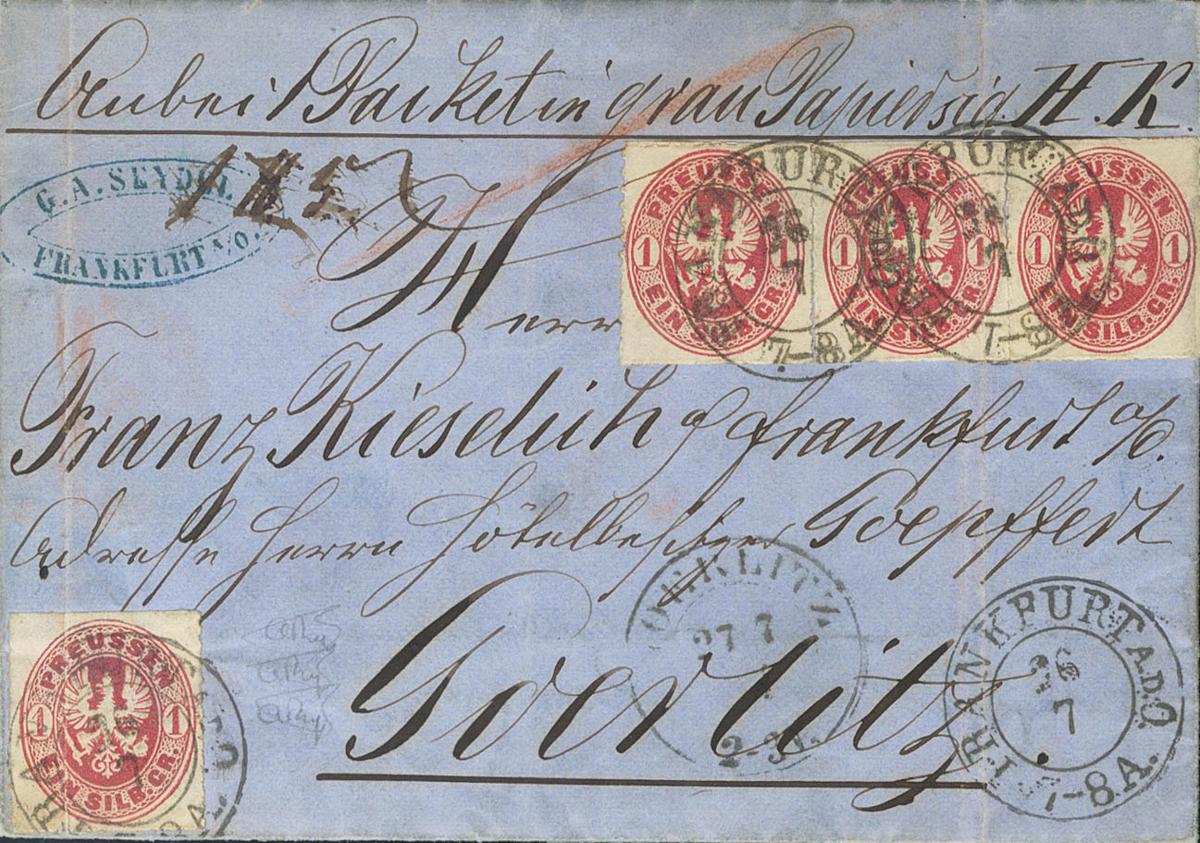 Anbei 1 Packet in grau Papier sig. H. K.
G. A. SEYDEL
FRANKFURT A/O.
Herrn
Franz Kieselich
Frankfurt a/O.
Adresse Herrn Hôtelbesitzer Goepffert
Goerlitz
PREUSSEN
1 1
EIN SILB. GR.
PREUSSEN
1 1
EIN SILB. GR.
PREUSSEN
1 1
EIN SILB. GR.
26
7
7-8 A.
26
7
7-8 A.
GOERLITZ
27 7
2-3
FRANKFURT A.D.O.
26
7
7-8 A.
PREUSSEN
1 1
EIN SILB. GR.